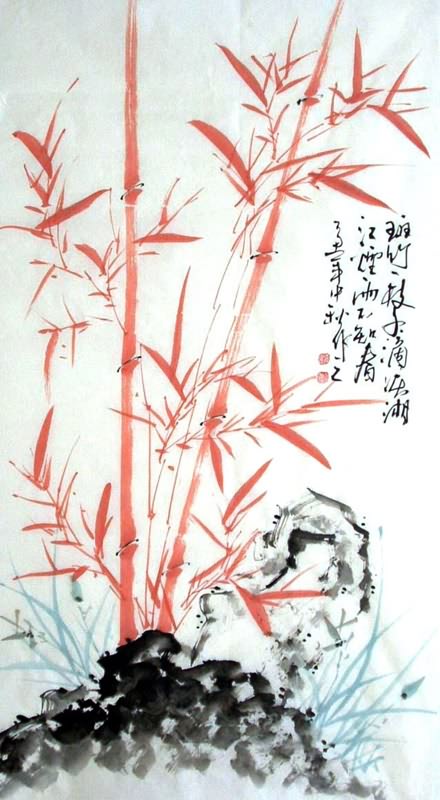 斑竹一枝千滴泪湘
江煙雨不知春
丑年中秋作之